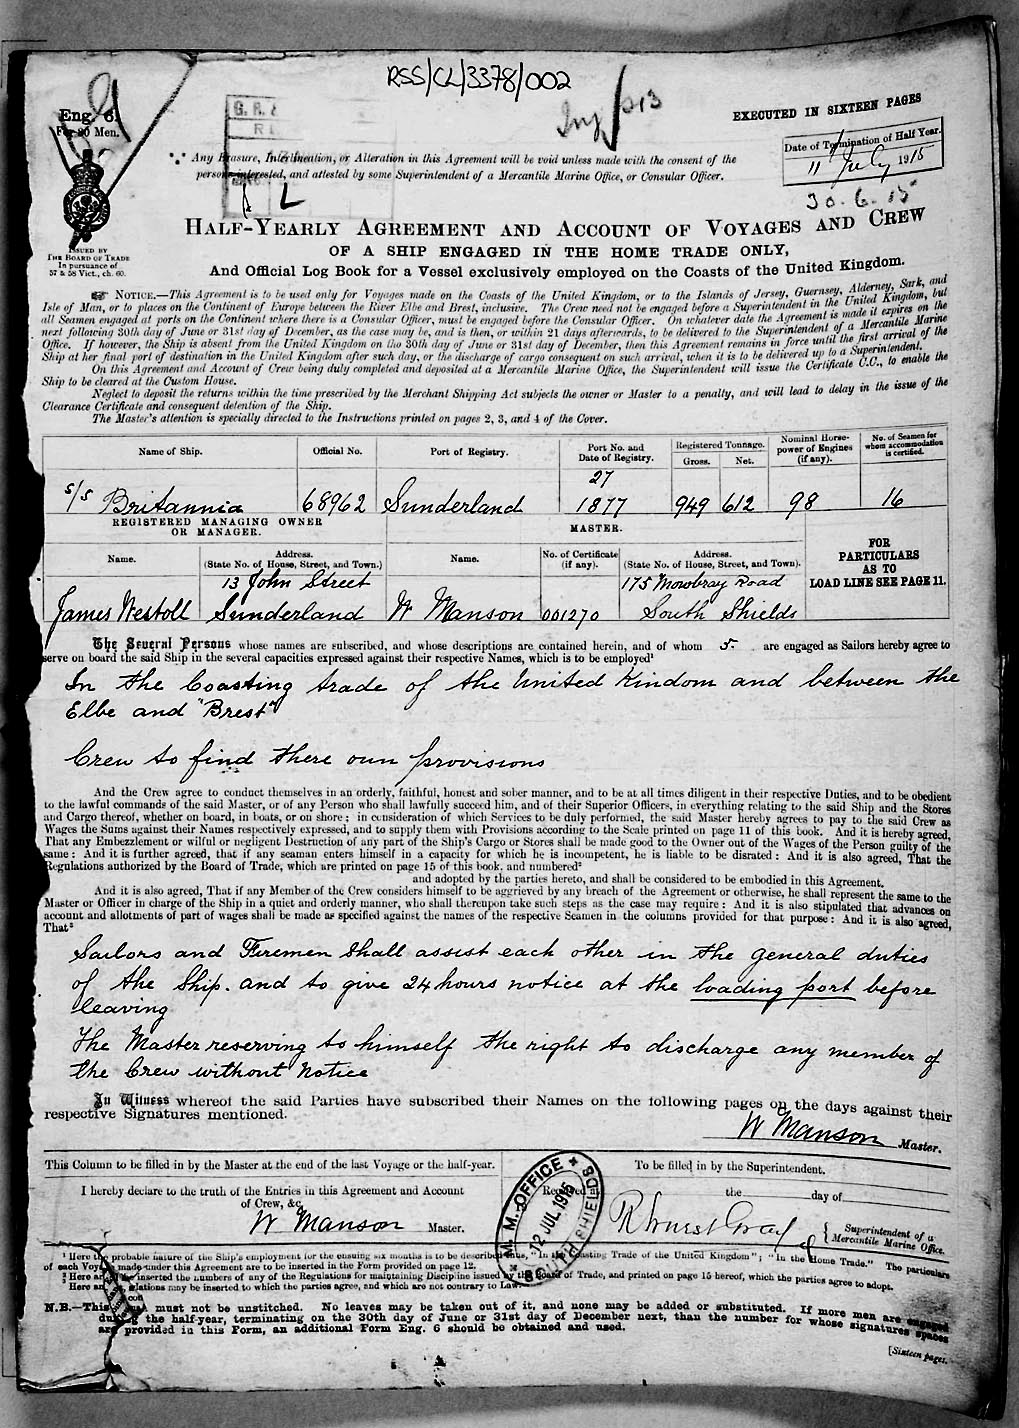 RSS/CL/3378/002
EXECUTED IN SIXTEEN PAGES
Eng. 6.
For 80 Men.
G. R. &
Date of Termination of Half Year.
11 July 1915
30.6.15
Any Erasure, Interlineation, or Alteration in this Agreement will be void unless made with the consent of the
persons interested, and attested by some Superintendent of a Mercantile Marine Office, or Consular Officer.
L
ISSUED BY
THE BOARD OF TRADE
In pursuance of
57 & 58 Vict., ch. 60.
HALF-YEARLY AGREEMENT AND ACCOUNT OF VOYAGES AND CREW
OF A SHIP ENGAGED IN THE HOME TRADE ONLY,
And Official Log Book for a Vessel exclusively employed on the Coasts of the United Kingdom.
NOTICE.—This Agreement is to be used only for Voyages made on the Coasts of the United Kingdom, or to the Islands of Jersey, Guernsey, Alderney, Sark, and
Isle of Man, or to places on the Continent of Europe between the River Elbe and Brest, inclusive. The Crew need not be engaged before a Superintendent in the United Kingdom, but
all Seamen engaged at ports on the Continent where there is a Consular Officer, must be engaged before the Consular Officer. On whatever date the Agreement is made it expires on the
next following 30th day of June or 31st day of December, as the case may be, and is then, or within 21 days afterwards, to be delivered to the Superintendent of a Mercantile Marine
Office. If however, the Ship is absent from the United Kingdom on the 30th day of June or 31st day of December, then this Agreement remains in force until the first arrival of the
Ship at her final port of destination in the United Kingdom after such day, or the discharge of cargo consequent on such arrival, when it is to be delivered up to a Superintendent.
On this Agreement and Account of Crew being duly completed and deposited at a Mercantile Marine Office, the Superintendent will issue the Certificate C.C., to enable the
Ship to be cleared at the Custom House.
Neglect to deposit the returns within the time prescribed by the Merchant Shipping Act subjects the owner or Master to a penalty, and will lead to delay in the issue of the
Clearance Certificate and consequent detention of the Ship.
The Master's attention is specially directed to the Instructions printed on pages 2, 3, and 4 of the Cover.
Name of Ship. Official No. Port of Registry. Port No. and Date of Registry. Registered Tonnage. Gross. Net. Nominal Horse-power of Engines (if any). No. of Seamen for whom accommodation is certified.
27
s/s Britannia 68962 Sunderland 1877 949 612 98 16
REGISTERED MANAGING OWNER OR MANAGER. MASTER.
FOR PARTICULARS AS TO LOAD LINE SEE PAGE 11.
Name. Address. (State No. of House, Street, and Town.) Name. No. of Certificate (if any). Address. (State No. of House, Street, and Town).
13 John Street 175 Mowbray Road
James Westoll Sunderland W Manson 001270 South Shields
The Several Persons whose names are subscribed, and whose descriptions are contained herein, and of whom 5. are engaged as Sailors hereby agree to
serve on board the said Ship in the several capacities expressed against their respective Names, which is to be employed¹
In the Coasting trade of the United Kindom and between the
Elbe and "Brest"
Crew to find there own provisions
And the Crew agree to conduct themselves in an orderly, faithful, honest and sober manner, and to be at all times diligent in their respective Duties, and to be obedient
to the lawful commands of the said Master, or of any Person who shall lawfully succeed him, and of their Superior Officers, in everything relating to the said Ship and the Stores
and Cargo thereof, whether on board, in boats, or on shore; in consideration of which Services to be duly performed, the said Master hereby agrees to pay to the said Crew as
Wages the Sums against their Names respectively expressed, and to supply them with Provisions according to the Scale printed on page 11 of this book. And it is hereby agreed,
That any Embezzlement or wilful or negligent Destruction of any part of the Ship's Cargo or Stores shall be made good to the Owner out of the Wages of the Person guilty of the
same: And it is further agreed, that if any seaman enters himself in a capacity for which he is incompetent, he is liable to be disrated: And it is also agreed, That the
Regulations authorized by the Board of Trade, which are printed on page 15 of this book. and numbered²
and adopted by the parties hereto, and shall be considered to be embodied in this Agreement.
And it is also agreed, That if any Member of the Crew considers himself to be aggrieved by any breach of the Agreement or otherwise, he shall represent the same to the
Master or Officer in charge of the Ship in a quiet and orderly manner, who shall thereupon take such steps as the case may require: And it is also stipulated that advances on
account and allotments of part of wages shall be made as specified against the names of the respective Seamen in the columns provided for that purpose: And it is also agreed,
That³
Sailors and Firemen shall assist each other in the general duties
of the Ship. and to give 24 hours notice at the loading port before
leaving
The Master reserving to himself the right to discharge any member of
the Crew without notice
In Witness whereof the said Parties have subscribed their Names on the following pages on the days against their
respective Signatures mentioned.
W Manson Master.
This Column to be filled in by the Master at the end of the last Voyage or the half-year. To be filled in by the Superintendent.
I hereby declare to the truth of the Entries in this Agreement and Account
of Crew, &c.
W Manson Master.
Received at the day of
Superintendent of a Mercantile Marine Office.
M. M. OFFICE
12 JUL 1915
SOUTH SHIELDS
¹ Here probable nature of the Ship's employment for the ensuing six months is to be described thus, "In the Coasting Trade of the United Kingdom"; "In the Home Trade." The particulars
of each Voyage made under this Agreement are to be inserted in the Form provided on page 12.
² Here are inserted the numbers of any of the Regulations for maintaining Discipline issued by the Board of Trade, and printed on page 15 hereof, which the parties agree to adopt.
Here may be inserted to which the parties agree, and which are not contrary to Law.
N.B.—This must not be unstitched. No leaves may be taken out of it, and none may be added or substituted. If more men are engaged
during the half-year, terminating on the 30th day of June or 31st day of December next, than the number for whose signatures spaces
are provided in this Form, an additional Form Eng. 6 should be obtained and used.
[Sixteen pages.